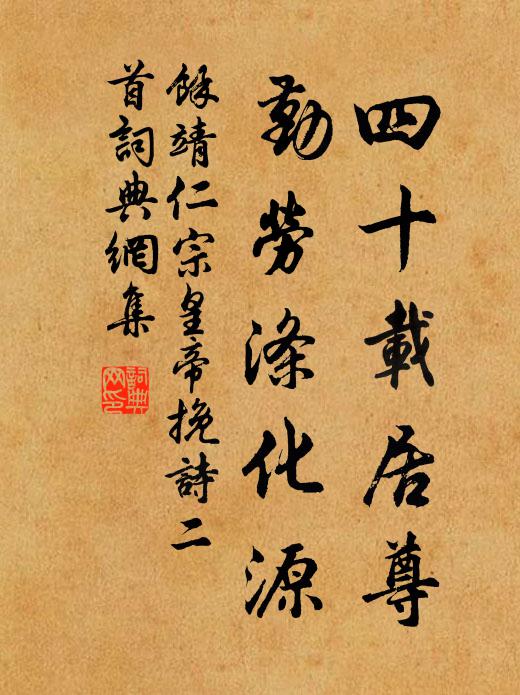 四十載居尊
勤勞滌化源
餘靖仁宗皇帝挽詩二
首詞典網集
詞典網印